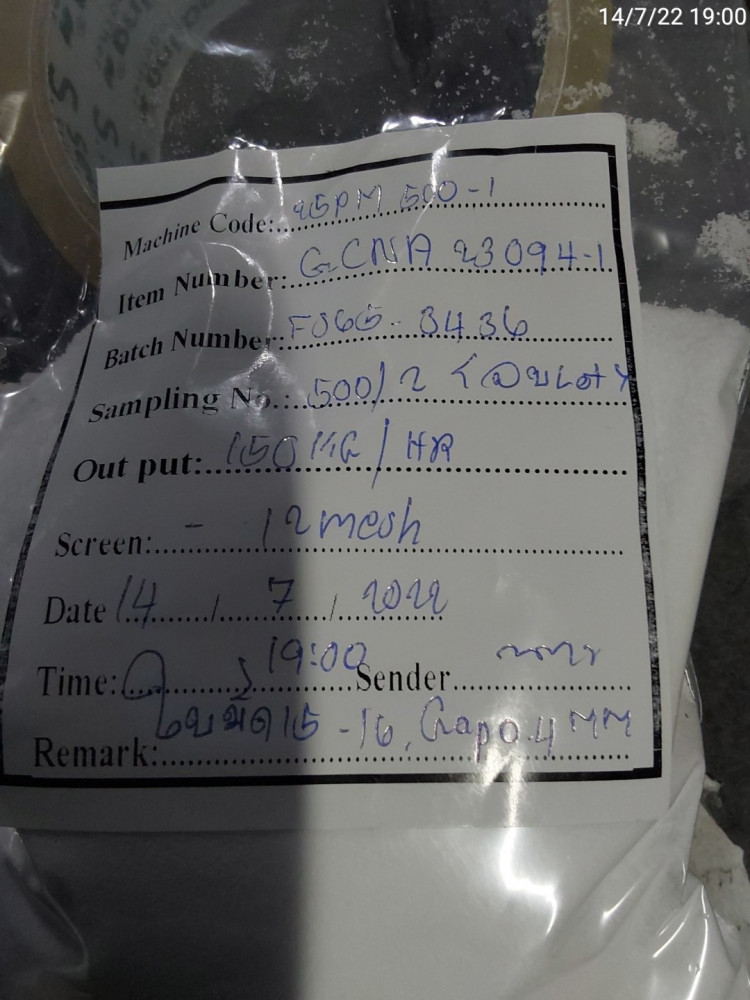 14/7/22 19:00
Machine Code: 25PM 500-1
Item Number: GCNA 23094-1
Batch Number: 3436
Sampling No.: 500/2
Out put: 150 KG/HR
Screen: - 12 mesh
Date 14 / 7 / 2022
Time: 19:00 Sender
Remark: ใบมีด 15-16, Gap 0.4 MM